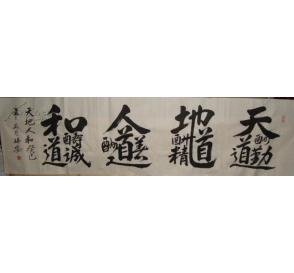 天道酬勤
地道酬精
人道酬善
和道酬誠
天地人和癸巳